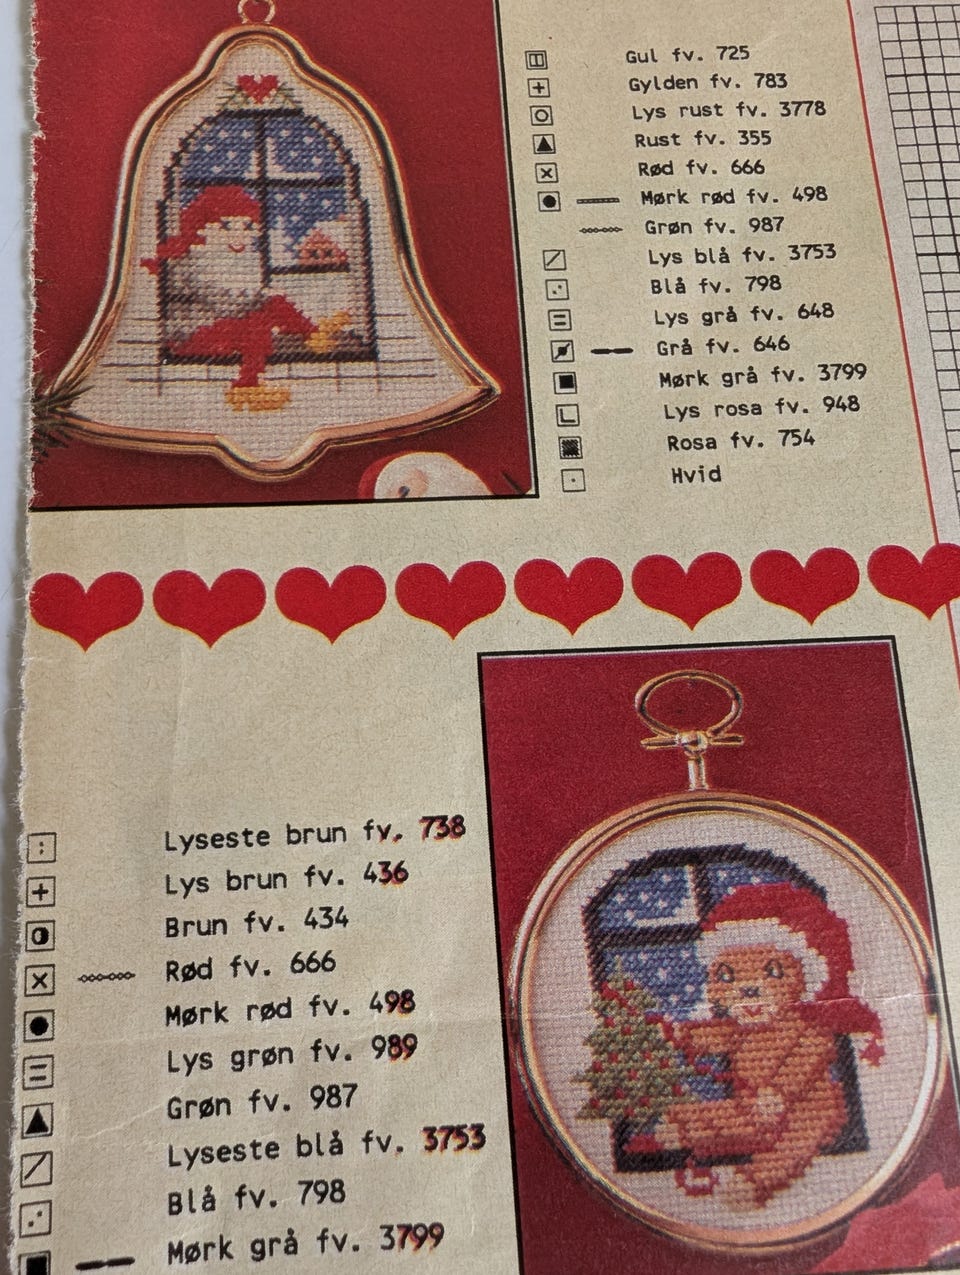 Gul fv. 725
Gylden fv. 783
Lys rust fv. 3778
Rust fv. 355
Rød fv. 666
Mørk rød fv. 498
Grøn fv. 987
Lys blå fv. 3753
Blå fv. 798
Lys grå fv. 648
Grå fv. 646
Mørk grå fv. 3799
Lys rosa fv. 948
Rosa fv. 754
Hvid
Lyseste brun fv. 738
Lys brun fv. 436
Brun fv. 434
Rød fv. 666
Mørk rød fv. 498
Lys grøn fv. 989
Grøn fv. 987
Lyseste blå fv. 3753
Blå fv. 798
Mørk grå fv. 3799